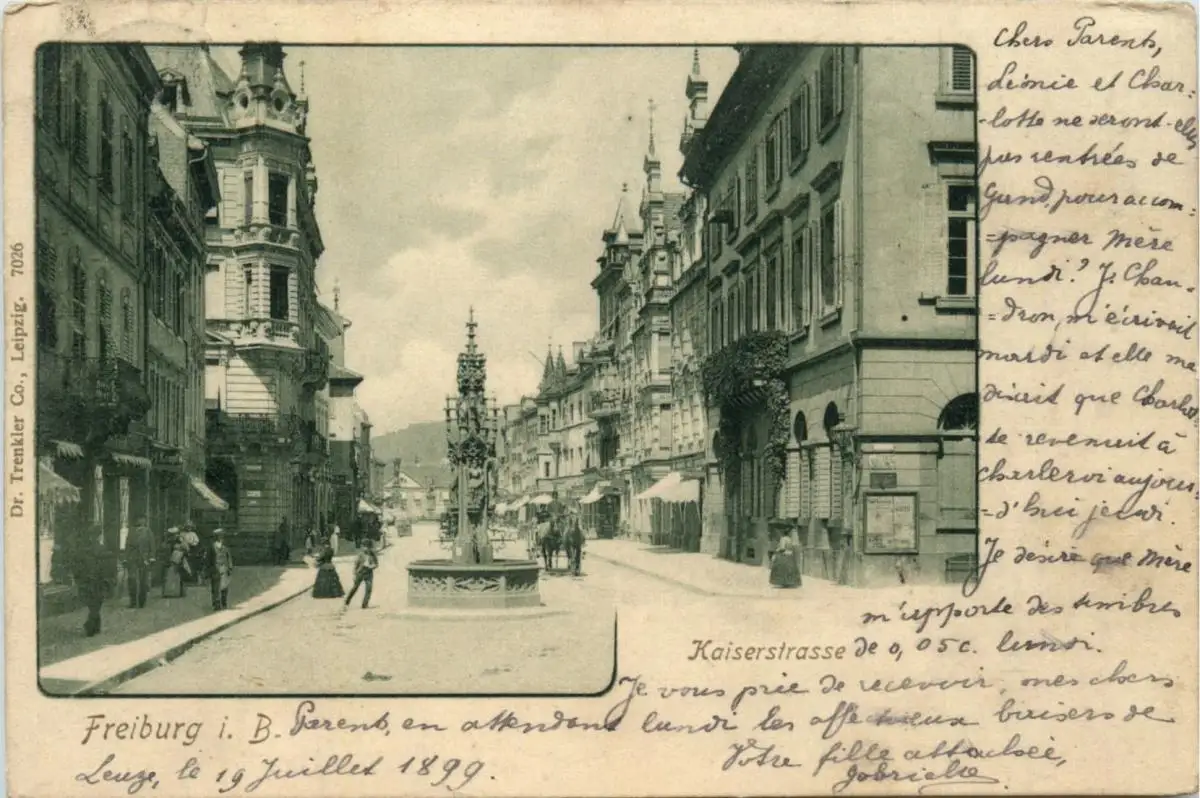 Dr. Trenkler Co., Leipzig. 7026
Chers Parents,
Léonie et Char=
-lotte ne seront-elles
pas rentrées de
Gand, pour accom=
=pagner Mère
lundi? J. Chan=
=dron, m'écrivait
mardi et elle me
disait que Charlot
te revenait à
Charleroi aujour=
=d'hui jeudi.
Je désire que Mère
m'apporte des timbres
de 0,05 c. lundi.
Je vous prie de recevoir, mes chers
Parents, en attendant lundi les affectueux baisers de
Votre fille attachée,
Gabrielle
Kaiserstrasse
Freiburg i. B.
Leuze, le 19 Juillet 1899.